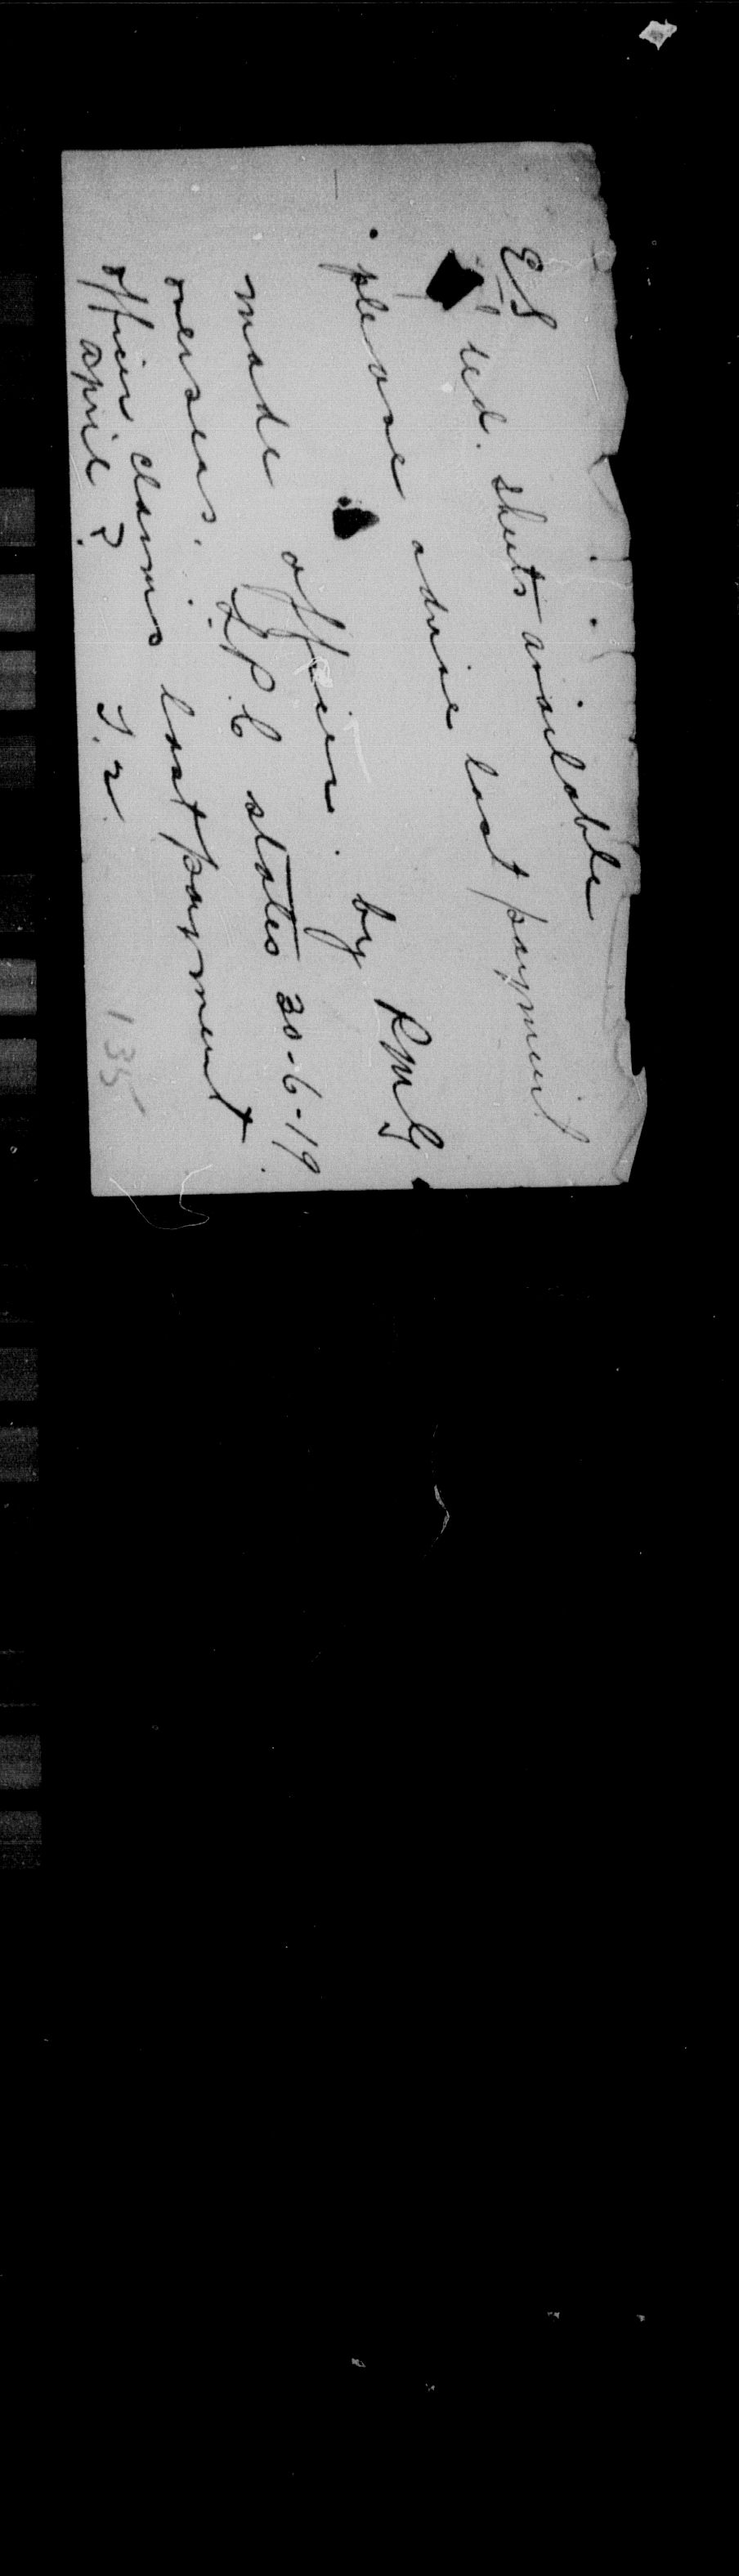 E.S
led. sheets available
please advise last payment
made officer by RMG
overseas. L.P.C states 30-6-19.
officer claims last payment
april ?
135